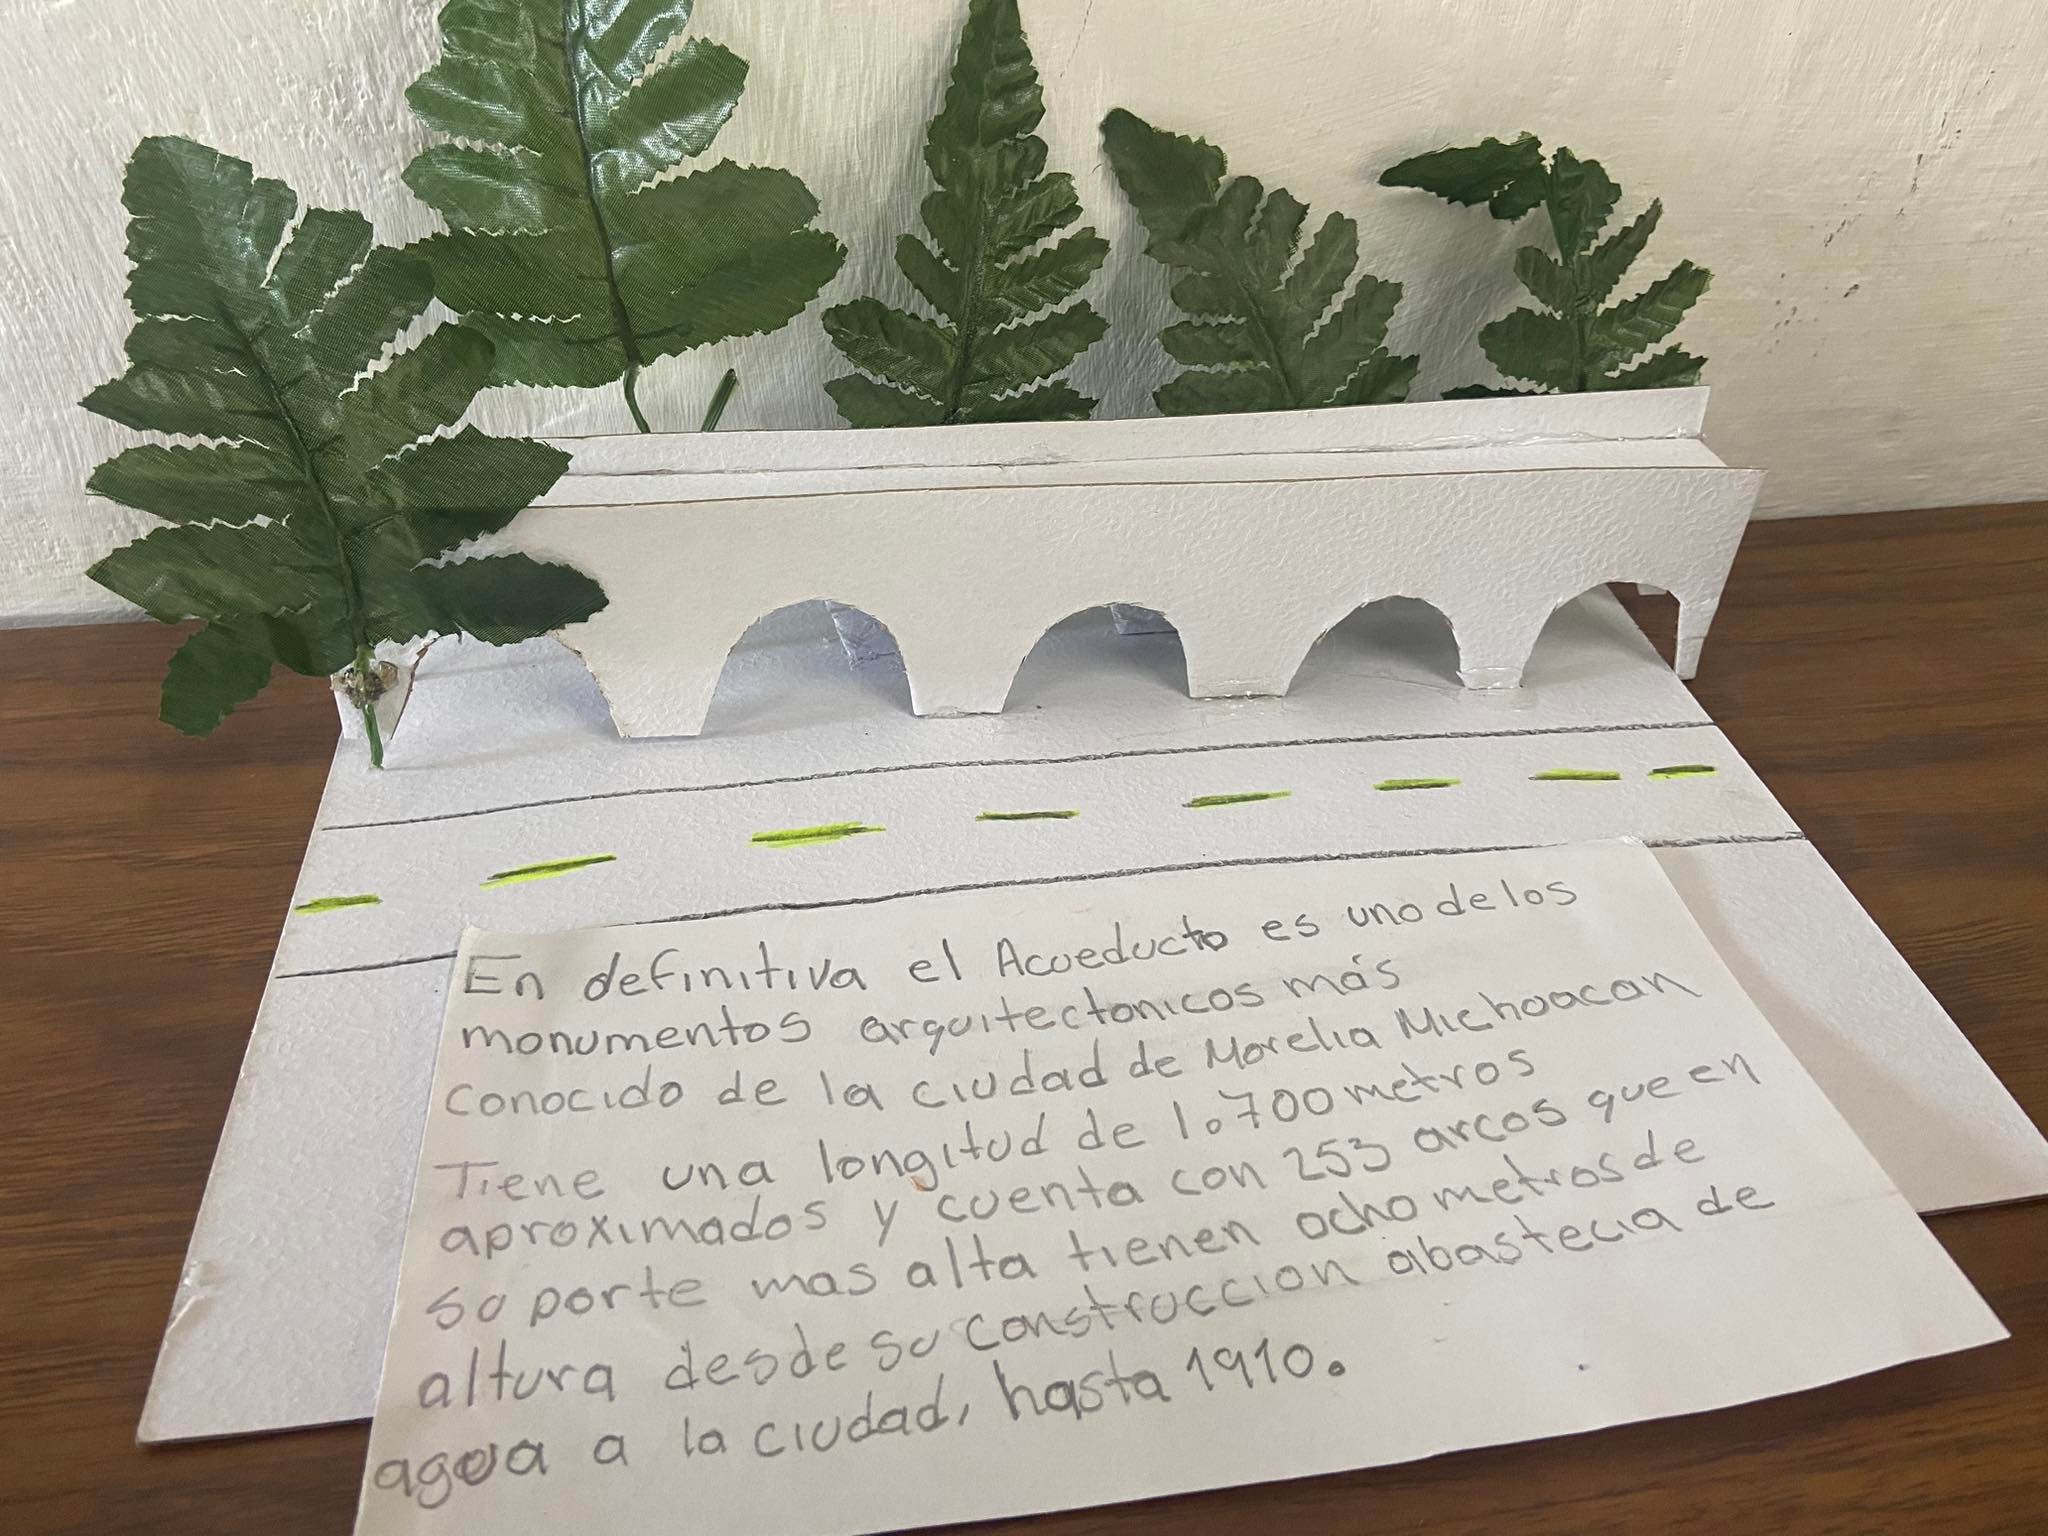 En definitiva el Acueducto es uno de los
monumentos arquitectonicos más
conocido de la ciudad de Morelia Michoacan
Tiene una longitud de 1.700 metros
aproximados y cuenta con 253 arcos que en
su porte mas alta tienen ocho metros de
altura desde su construccion abastecia de
agua a la ciudad, hasta 1910.